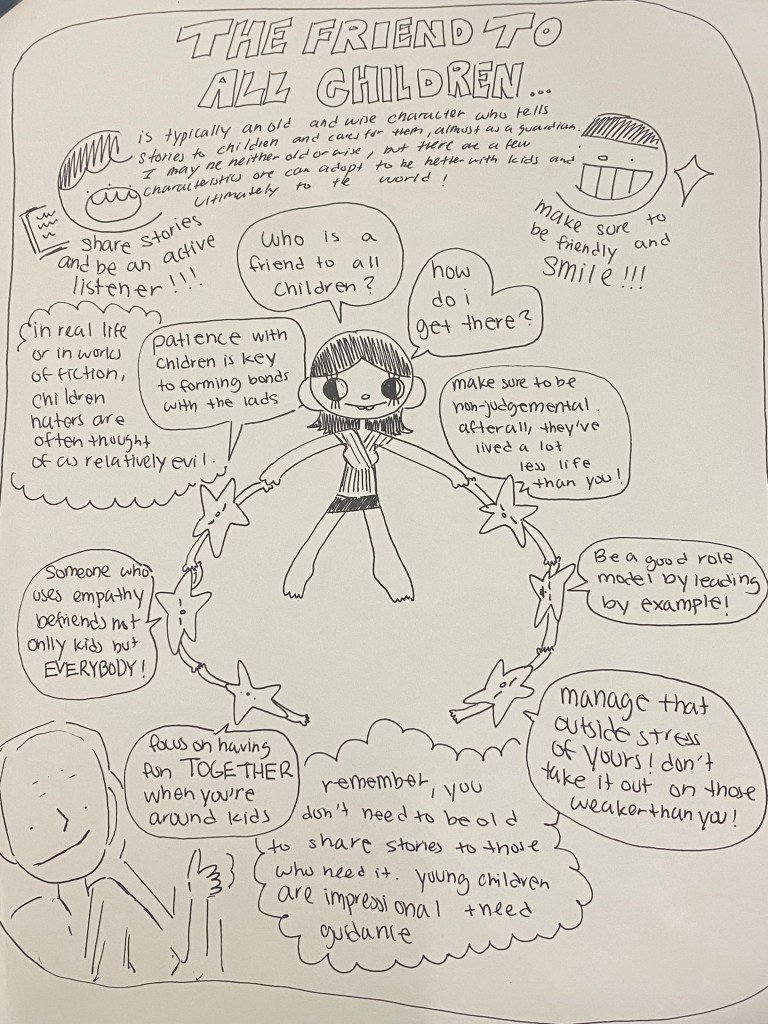 THE FRIEND TO
ALL CHILDREN...
is typically an old and wise character who tells
stories to children and cares for them, almost as a guardian.
I may be neither old or wise, but there are a few
characteristics one can adopt to be better with kids and
ultimately to te world!
share stories
and be an active
listener!!!
make sure to
be friendly and
SMILE!!!
who is a
friend to all
children?
how
do i
get there?
in real life
or in works
of fiction,
children
haters are
often thought
of as relatively evil.
patience with
children is key
to forming bonds
with the lads
make sure to be
non-judgemental.
afterall, they've
lived a lot
less life
than you!
Someone who
uses empathy
befriends not
onlly kids but
EVERYBODY!
Be a good role
model by leading
by example!
focus on having
fun TOGETHER
when you're
around kids
manage that
outside stress
of yours! don't
take it out on those
weaker than you!
remember, you
don't need to be old
to share stories to those
who need it. young children
are impressional + need
guidance